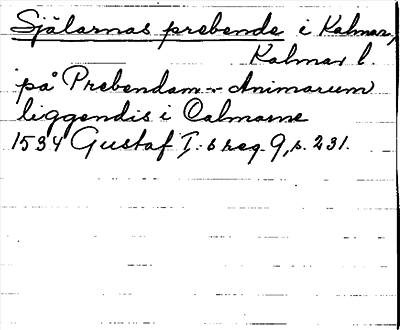 Själarnas prebende i Kalmar,
Kalmar l.
på Prebendam - Animarum
liggendis i Calmarne
1534 Gustaf I:s reg. 9, s. 231.